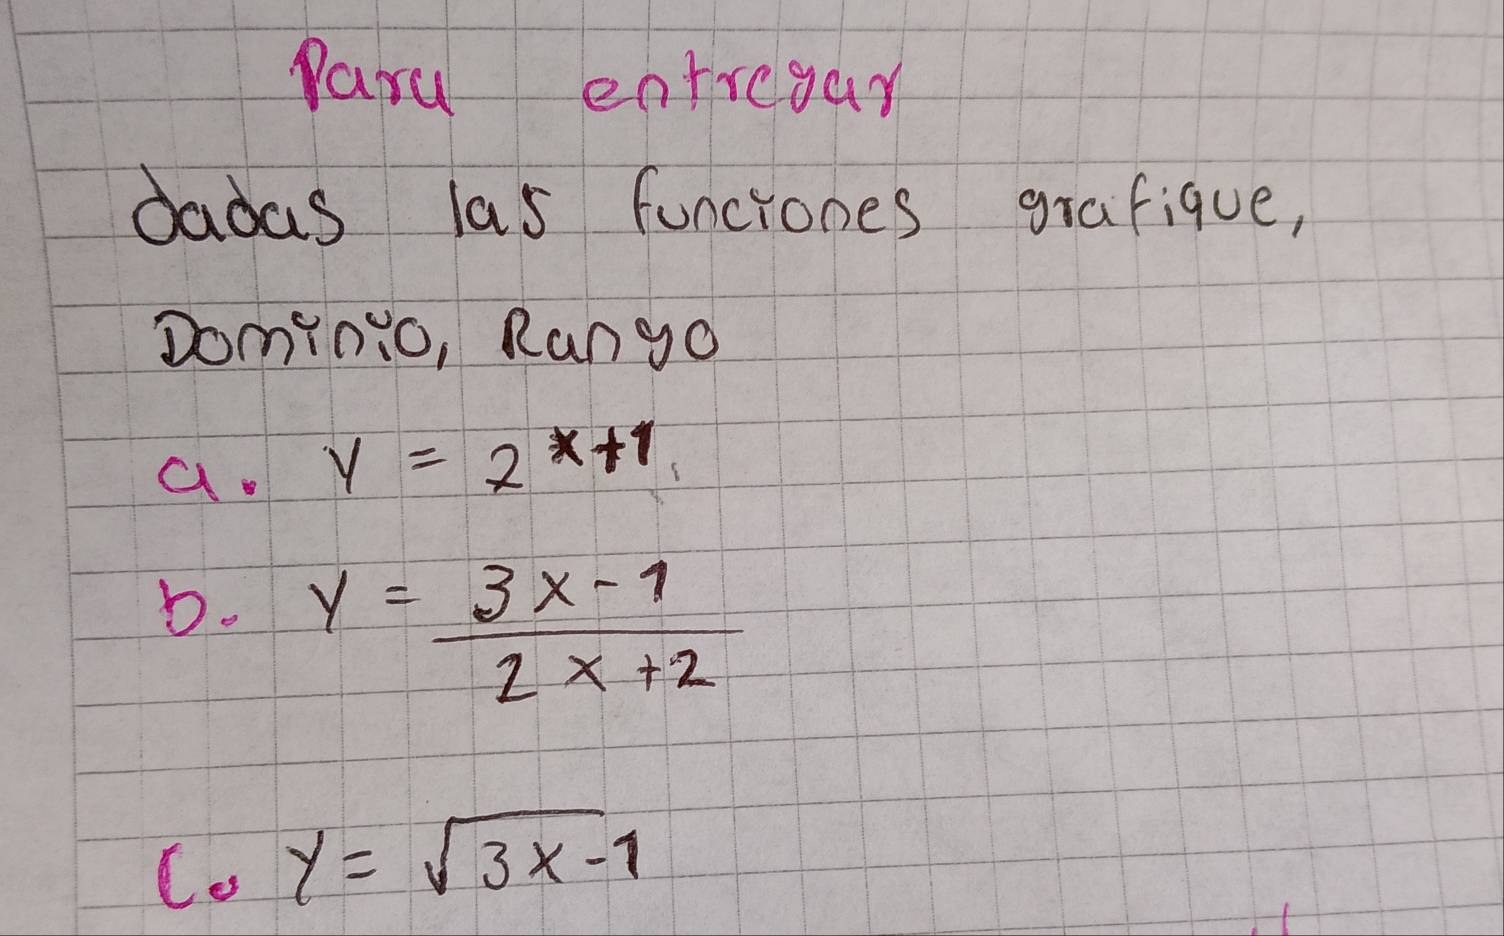 Para entregar
dadas las funciones grafique,
Dominio, Rango
a. y = 2^{x+1}
b. y = \frac{3x-1}{2x+2}
c. y = \sqrt{3x-1}